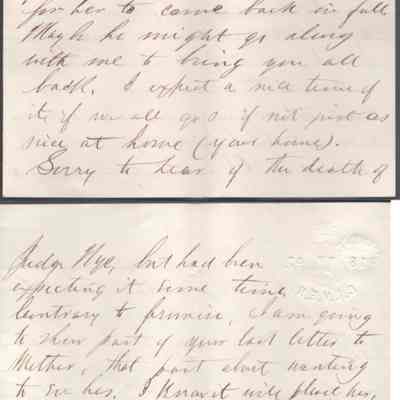 for her to come back in fall
Mayb he might go along
with me to bring you all
back. I expect a nice time of
it if we all go; if not just as
nice at home (your home).
Sorry to hear of the death of
Judge Nye, but had been
expecting it some time.
Contrary to promise, I am going
to show part of your last letter to
Mother, that part about wanting
to see her. I know it will please her,